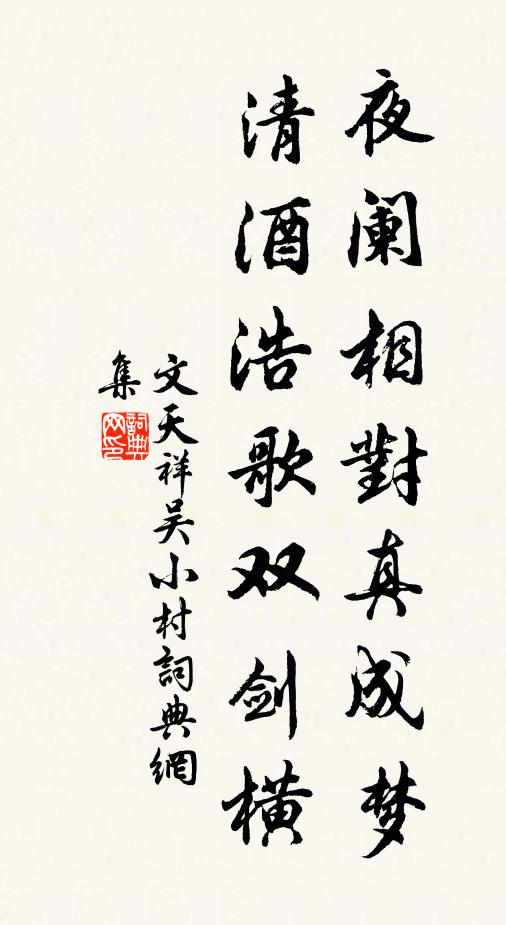 夜阑相對真成梦
清酒浩歌双剑横
文天祥吴小村詞典網
集
詞典
网印